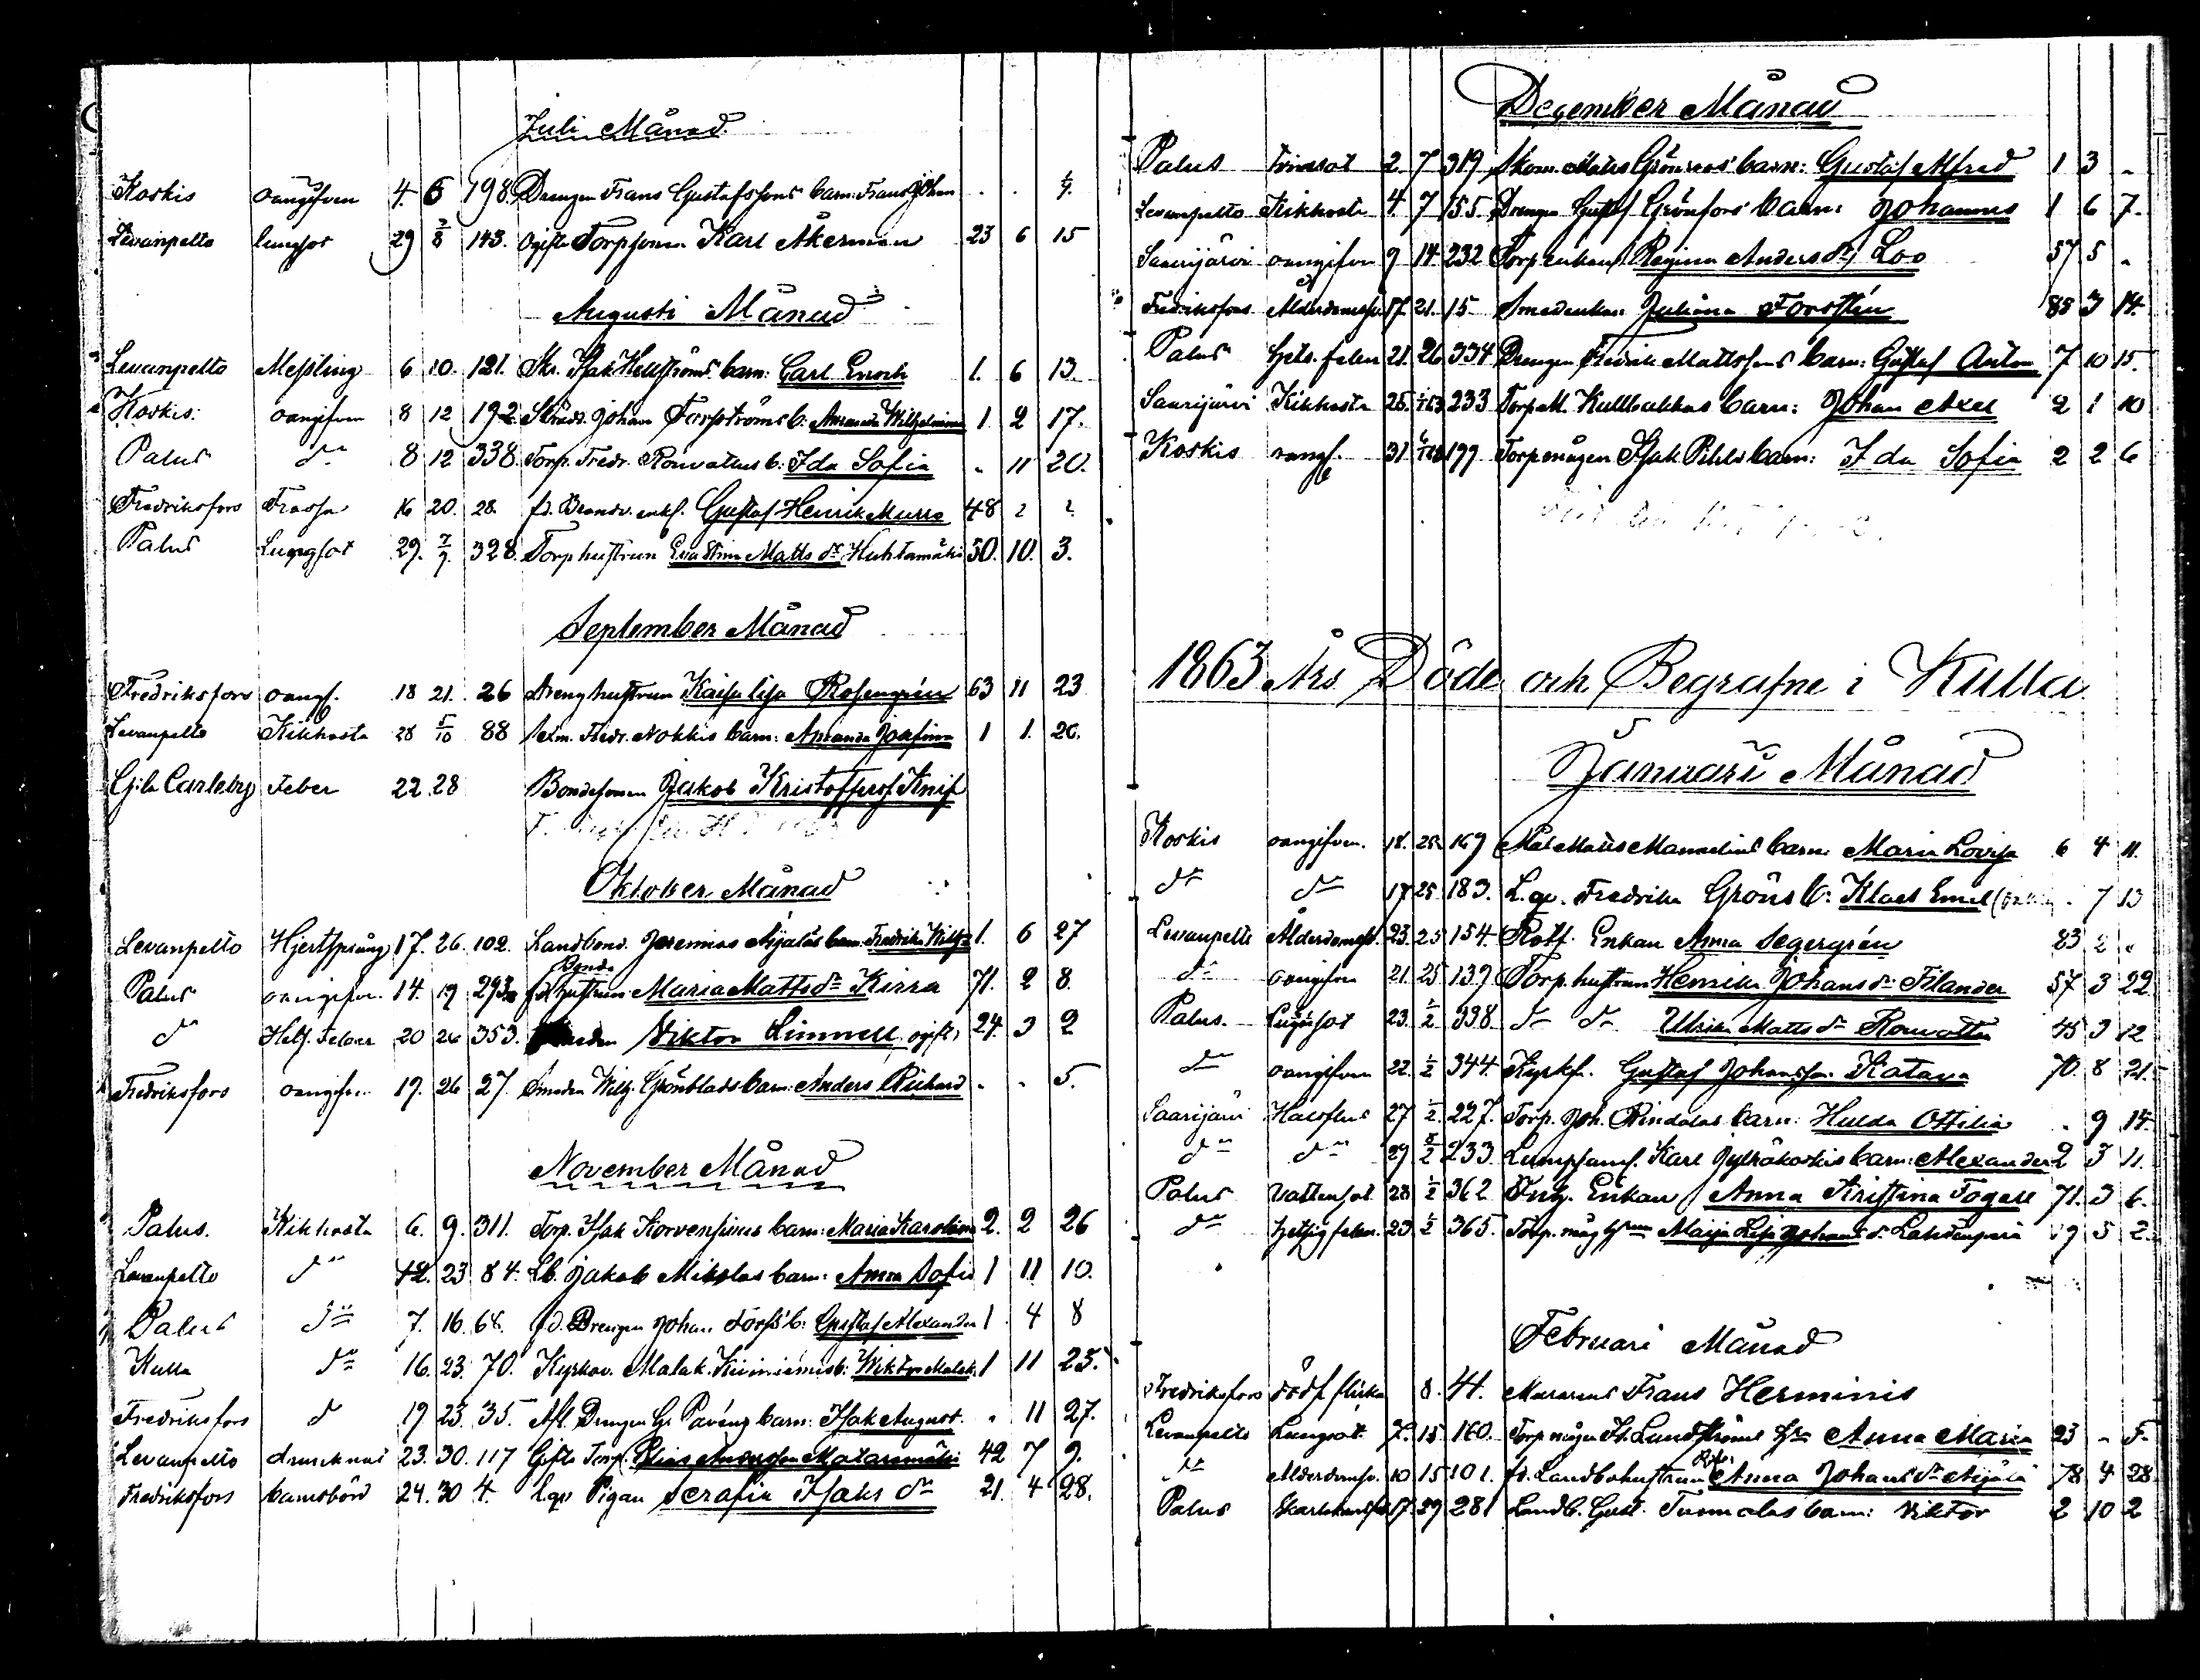 Juli Månad
Koskis oangifven 4. 6 198. Drengen Frans Gustafssons barn: Frans Johan . . 1/4.
Levanpelto lungsot 29 3/8 143. Ogifte Torpsonen Karl Åkerman 23 6 15
Augusti Månad
Levanpelto Messling 6 10. 121. Skr. Isak Hellströms barn: Carl Enoch 1. 6 13.
Koskis: oangifven 8 12 192 Johan Torpströms b: Amanda Wilhelmina 1. 2 17.
Palus dn 8 12 338. Torp. Fredr. Ronvallus b: Ida Sofia . 11 20.
Fredriksfors Frossa 16 20. 28. fd. Gustaf Henrik Murro 48 2 2.
Palus Lungsot 29. 7/9. 328. Torphustrun Eva Stina Matts dr Huhtamäki 50. 10. 3.
September Månad
Fredriksfors oangf. 18 21. 26 Drenghustrun Kaisa Lisa Rosengrén 63 11 23
Levanpelto Kikhosta 28 5/10 88 Fredr. Nokkis barn: Amanda Josefina 1 1. 26.
G:la Carleby Feber 22. 28 Bondesonen Jakob Kristoffersf Knif
Oktober Månad
Levanpelto Hjertsprång 17. 26. 102. Landbond. Jeremias Äijäläs barn: Fredrika Wilh:a 1. 6 27
Palus oangifven 14. 19 293. fd Bonde hustrun Maria Matts dr Kirra 71. 2 8.
dn Hets. Feber 20 26 353. Viktor Linnell, ogift, 24. 3 2
Fredriksfors oangifven 19. 26 27. Smeden Wilh. Grönblads barn: Anders Richard . . 5.
November Månad
Palus. Kikhosta 6. 9. 311. Torp. Isak Korvensuus barn: Maria Karolina 2. 2 26
Levanpelto dn 12. 23 84. Lb. Jakob Mikolas barn: Anna Sofia 1 11 10.
Palus dn 7. 16. 68. fd. Drengen Johan b: Gustaf Alexander 1. 4 8
Kulla dn 16. 23. 70. Kyrkov. Malak. b: Wiktor Malak. 1 11 25.
Fredriksfors dn 19 23. 35. Afl. Drengen barn: Isak August. . 11 27.
Levanpelto drunknad 23. 30. 117 Gifte Torp. Elias Andersson Mataramäki 42 7 9.
Fredriksfors barnsbörd 24. 30 4. Lgo Pigan Serafia Isaks dr 21. 4 28.
December Månad
Palus 2. 7 319 Matts Grönroos' barn: Gustaf Alfred 1 3 .
Levanpelto Kikhosta 4 7 155. Drengen Gustaf Grönfors' barn: Johannes 1 6 7.
Saarijärvi oangifven 9 14 232 Torpenkan Regina Anders dr Loo 57 5 .
Fredriksfors Ålderdomssv. 17. 21. 15. Smedenkan Juliana Forstén 88 3 14.
Palus hets. feber 21. 26 334 Drengen Fredrik Mattssons barn: Gustaf Anton 7 10 15.
Saarijärvi Kikhosta 25. 1/1 63 233 Torp M. Kullbakkas barn: Johan Axel 2 1 10
Koskis oangf. 31 199 Torpmågen Isak Pihls barn: Ida Sofia 2 2 6
1863 Års Döde och Begrafne i Kulla
Januari Månad
Koskis oangifven. 18. 25. 169 Matts barn: Maria Lovisa 6 4 11.
dn dn 17 25 183. L.go. Fredrika Gröns b: Klaes Emel . 7 13
Levanpelto Ålderdomsb. 23. 25 154. Rotf. Enkan Anna Segergrén 83 2 .
dn oangifven 21. 25 139 Torphustrun Henrika Johans dr Filander 57 3 22
Palus. Lungsot 23. 1/2. 338. dn dn Ulrika Matts dr Ronvallus 45 3 12
dn oangifven 22. 1/2 344. Kyrkf. Gustaf Johansson Katava 70. 8 21.
Saarijärvi Halsflus 27 1/2. 227. Torp. Joh. Rindalas barn: Hulda Ottilia . 9 14.
dn dn 29 8/2 233. Lumpsaml. Karl Jylhäkoskis barn: Alexander 2 3 11.
Palus Vattensot 28 1/2 362 Inh. Enkan Anna Kristina Togell 71. 3 6.
dn hetsig feber. 23 1/2 365. Torp. måg hrun Maija Lisa Johans dr Lahdenperä 19 5 2.
Februari Månad
Fredriksfors dödf. flicka 8. 41. Murarens Frans Herminis
Levanpelto Lungsot. 7. 15. 160. Torpmågen Is. Lundströms hr Anna Maria 23 . 5.
dn Ålderdomsv. 10 15 101. fd. Landbohustrun Anna Johans dr Äijälä 78 4 28
Palus 17. 29 281 Landb. Gust. Tuomolas barn: Viktor 2 10 2